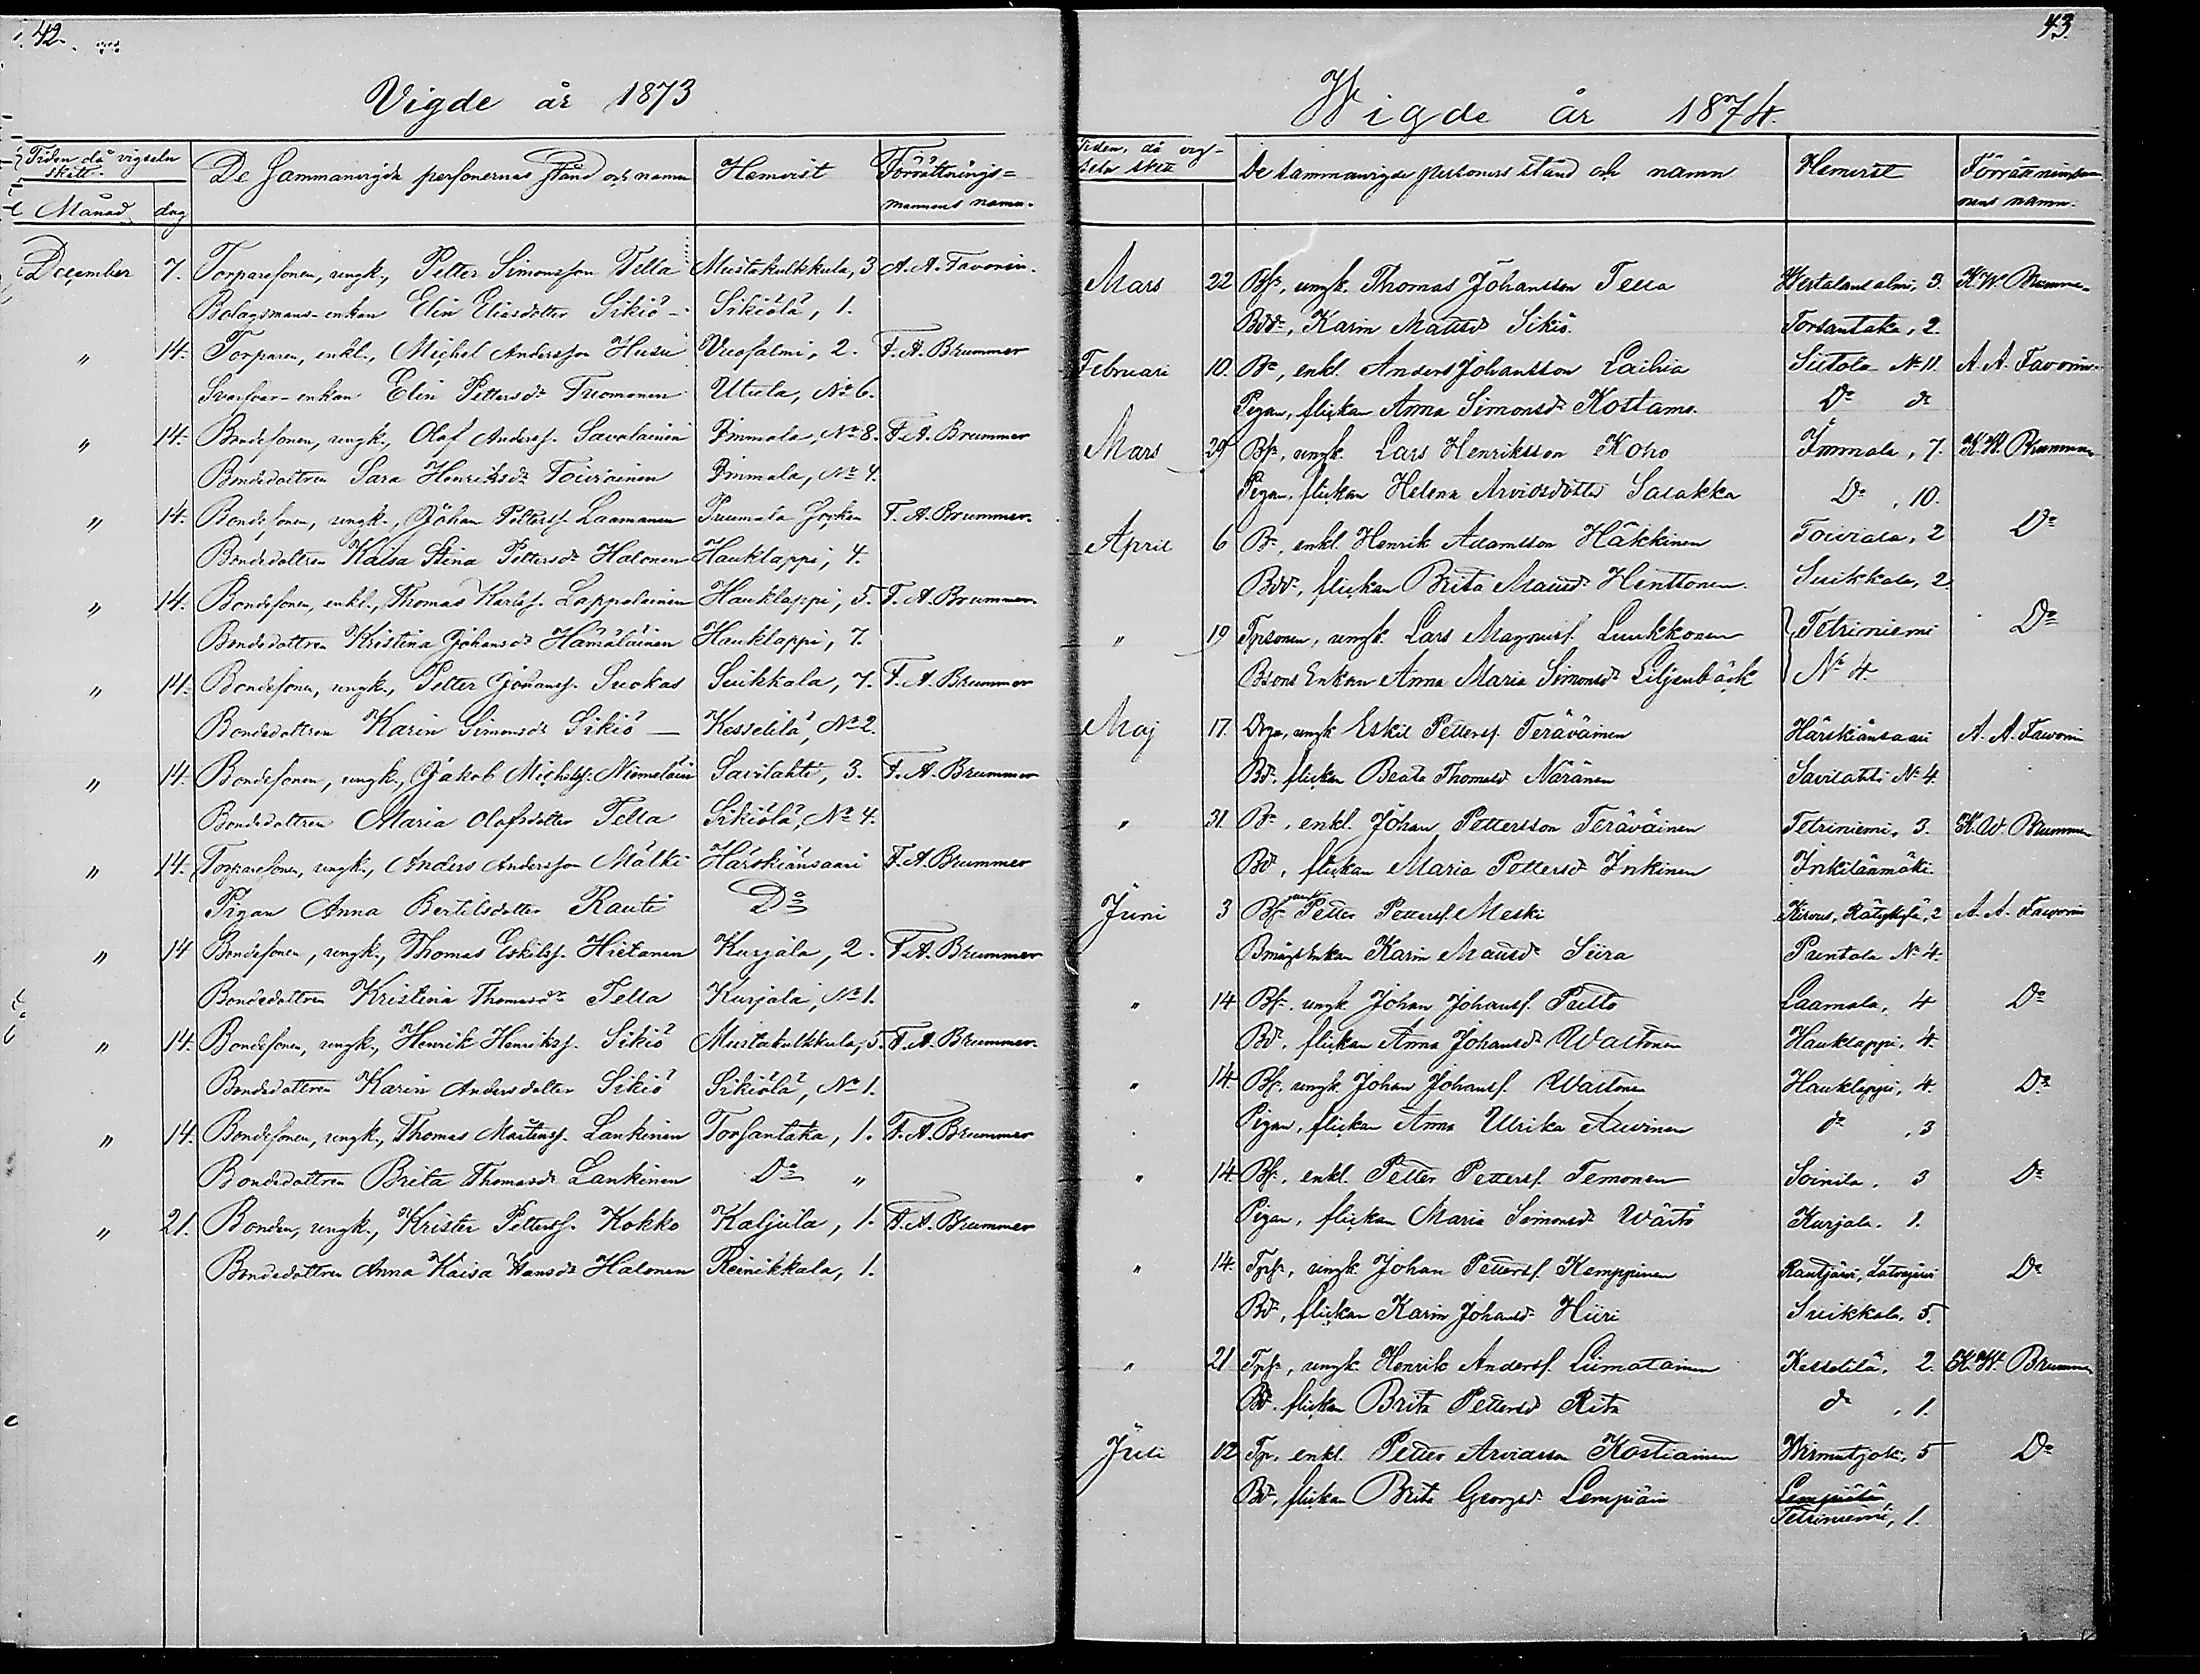 42.
Vigde år 1873
Tiden då vigseln skett. De Sammanvigda personernas stånd och namn Hemvist Förrättnings-
Månad dag mannens namn.
December 7. Torparesonen, ungk., Petter Simonsson Tella Mustakulkkula, 3 A. A. Favorin.
Bolagsmans-enkan Elin Eliasdotter Sikiö - Sikiölä, 1.
" 14. Torparen, enkl., Michel Andersson Husu Vuosalmi, 2. F. A. Brummer
Elin Pettersdr Tuomonen Utula, No 6.
" 14. Bondesonen, ungk., Olof Anderss. Savolainen Immala, No 8. F. A. Brummer
Bondedottren Sara Henriksdr Toiviainen Immala, No 4.
" 14. Bondesonen, ungk., Johan Petterss. Laamanen Puumala Socken F. A. Brummer.
Bondedottren Kaisa Stina Pettersdr Halonen Hauklappi, 4.
" 14. Bondesonen, enkl., Thomas Karlss. Lappalainen Hauklappi, 5. F. A. Brummer.
Bondedottren Kristina Johansdr Hämäläinen Hauklappi, 7.
" 14. Bondesonen, ungk., Petter Johanss. Suokas Suikkala, 7. F. A. Brummer
Bondedottren Karin Simonsdr Sikiö — Kesselilä, No 2.
" 14. Bondesonen, ungk., Jakob Michelss. Niemeläin Savilahti, 3. F. A. Brummer
Bondedottren Maria Olofsdotter Tella Sikiölä, No 4.
" 14. Torparesonen, ungk., Anders Andersson Mälki Härskiänsaari F. A. Brummer
Pigan Anna Bertilsdotter Rauti Do
" 14 Bondesonen, ungk., Thomas Eskilss. Hietanen Kurjala, 2. F. A. Brummer
Bondedottren Kristina Thomasdr Tella Kurjala, No 1.
" 14. Bondesonen, ungk., Henrik Henrikss. Sikiö Mustakulkkula, 5. F. A. Brummer.
Bondedottren Karin Andersdotter Sikiö Sikiölä, No 1.
" 14. Bondesonen, ungk., Thomas Mårtenss. Lankinen Torsantaka, 1. F. A. Brummer
Bondedottren Brita Thomasdr Lankinen Do "
" 21. Bonden, ungk., Krister Petterss. Kokko Kaljula, 1. F. A. Brummer
Bondedottren Anna Kaisa Hansdr Halonen Reinikkala, 1.
43.
Wigde år 1874.
Tiden, då vig-
seln skett De sammanvigde personers stånd och namn Hemvist Förrättningsman-
nens namn.
Mars 22 Bs., ungk. Thomas Johansson Tella Wirtalansalmi, 3. K. W. Brummer
Bdr, Karin Mattsdr Sikiö. Torsantaka, 2.
Februari 10. Be, enkl. Anders Johansson Laihia Siitola No 11 A. A. Favorin.
Pigan, flickan Anna Simonsdr Kostamo. Do do
Mars 29 Bs., ungk. Lars Henriksson Koho Immala, 7. K. W. Brummer
Pigan, flickan Helena Arvidsdotter Salakka Do, 10.
April 6 Be, enkl. Henrik Adamsson Häkkinen Toiviala, 2 Do
Bdr, flickan Brita Mattsdr Henttonen Suikkala, 2.
" 19 Tpsonen, ungk. Lars Magnuss. Luukkonen Tetriniemi Do
Bsons Enkan Anna Maria Simonsdr Liljenbäck No 4.
Maj 17. Drgn, ungk. Eskil Petterss. Teräväinen Härskiänsaari A. A. Favorin
Bdr, flickan Beata Thomasdr Näränen Savilahti No 4.
" 31. Be, enkl. Johan Pettersson Teräväinen Tetriniemi, 3. K. W. Brummer
Bdr, flickan Maria Pettersdr Inkinen Inkilänmäki.
Juni 3 Bs. ungk. Petter Petterss. Meski Kirvus, 2 A. A. Favorin
Enkan Karin Mattsdr Siira Puntala No 4.
" 14 Bs. ungk Johan Johanss. Pulto Laamala, 4 Do
Bdr, flickan Anna Johansdr Wastonen Hauklappi, 4.
" 14. Bs. ungk Johan Johanss. Wastonen Hauklappi, 4. Do
Pigan, flickan Anna Ulrika Auvinen do, 3
" 14. Bs. enkl. Petter Petterss. Temonen Soinila, 3 Do
Pigan, flickan Maria Simonsdr Wärtö Kurjala, 1.
" 14. Tps., ungk Johan Petterss. Kemppinen Rautjärvi, Latvajärvi Do
Bdr, flickan Karin Johansdr Hiiri Suikkala, 5.
" 21 Tps., ungk. Henrik Anderss. Liimatainen Kesselilä, 2. K. W. Brummer
Bdr. flickan Brita Pettersdr Rita do, 1.
Juli 12 Tp. enkl. Petter Arvidsson Kostiainen Wirmutjoki, 5 Do
Bdr, flickan Brita Georgsdr Lempiäin Lempiälä
Tetriniemi, 1.